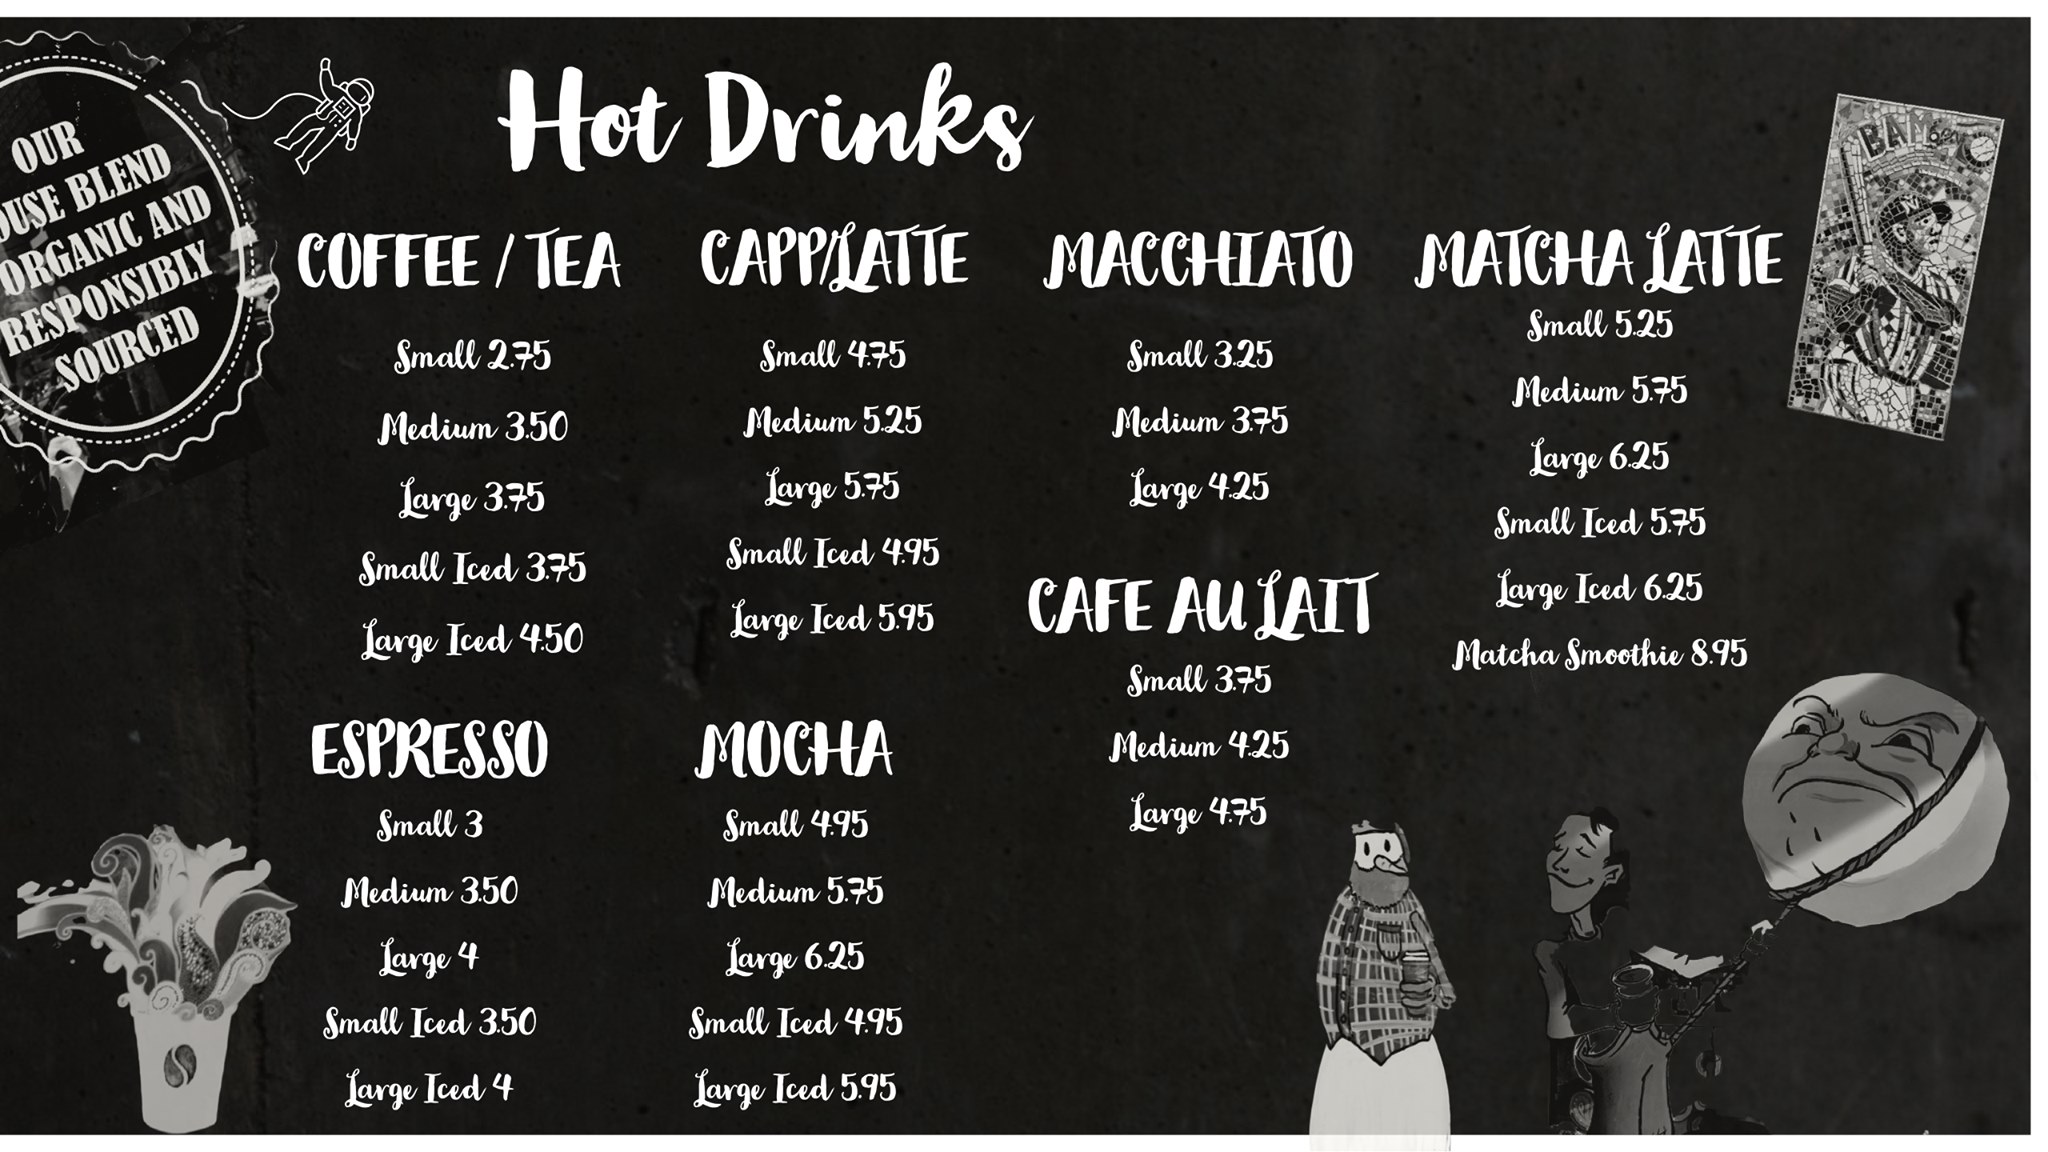 OUR
BLEND
ORGANIC AND
RESPONSIBLY
SOURCED
Hot Drinks
COFFEE / TEA
Small 2.75
Medium 3.50
Large 3.75
Small Iced 3.75
Large Iced 4.50
ESPRESSO
Small 3
Medium 3.50
Large 4
Small Iced 3.50
Large Iced 4
CAPP/LATTE
Small 4.75
Medium 5.25
Large 5.75
Small Iced 4.95
Large Iced 5.95
MOCHA
Small 4.95
Medium 5.75
Large 6.25
Small Iced 4.95
Large Iced 5.95
MACCHIATO
Small 3.25
Medium 3.75
Large 4.25
CAFE AU LAIT
Small 3.75
Medium 4.25
Large 4.75
MATCHA LATTE
Small 5.25
Medium 5.75
Large 6.25
Small Iced 5.75
Large Iced 6.25
Matcha Smoothie 8.95